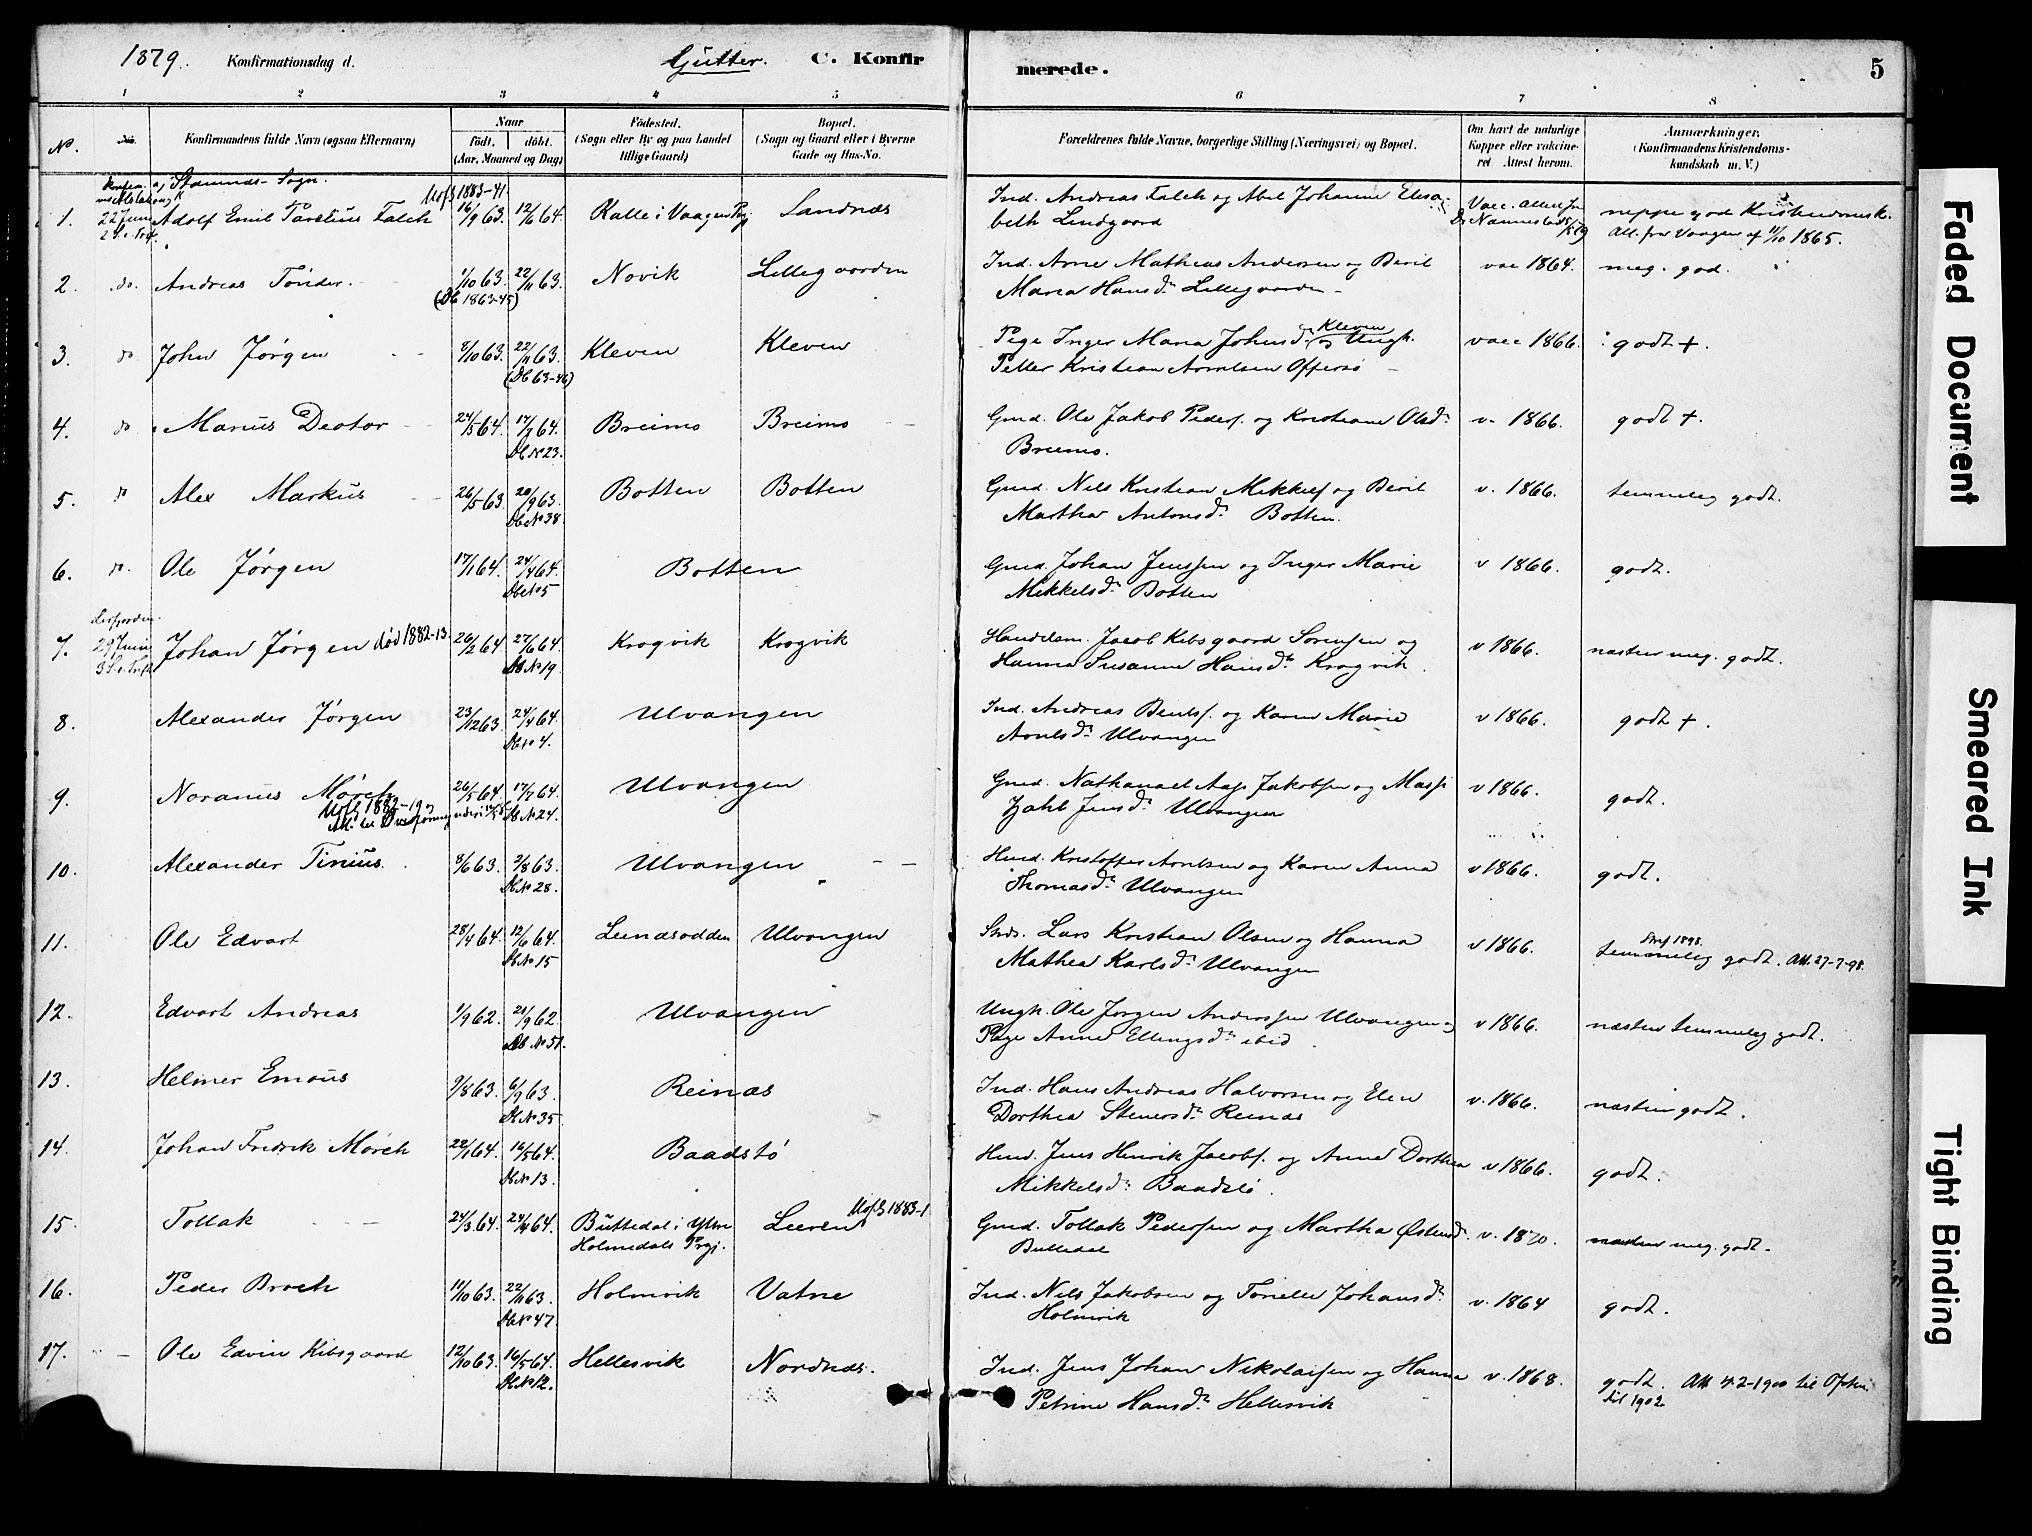 1879. Konfirmationsdag d. Gutter. C. Konfirmerede. 5
1 2 3 4 5 6 7 8
No. Konfirmandens fulde Navn (ogsaa Efternavn) Naar født, døbt. (Aar, Maaned og Dag) Fødested. (Sogn eller By og paa Landet tillige Gaard) Bopæl. (Sogn og Gaard eller i Byerne Gade og Hus-No. Forældrenes fulde Navne, borgerlige Stilling (Næringsvei) og Bopæl. Om havt de naturlige Kopper eller vakcineret. Attest herom. Anmærkninger. (Konfirmandens Kristendomskundskab m. V.)
Stamnes Sogn.
1. 22 Juni Adolf Emil Parelius Falch 16/9 63. 12/6 64. Kalle i Vaagen Prgj Sandnæs Ind. Andreas Falch og Abel Johanne Elisa- Vacc. neppe god Kristendomsk.
beth Lindgaard Att. fra Vaagen af 11/10 1865.
2. do. Andreas Tønder. 1/10 63. 22/11 63. Novik Lillegaarden Ind. Arne Mathias Andersen og Beret vac 1864. meg. god.
(Db 1863-45) Maria Hansdr Lillegaarden
3. do John Jørgen 8/10 63. 22/11 63. Kleven Kleven Pige Inger Maria Johnsdr Kleven og Ungk. vacc 1866. godt +.
(Db 63-46) Petter Kristian Arntsen Offersø
4. do Marius Deotor 24/5 64. 17/7 64. Breimo Breimo Gmd. Ole Jakob Peders. og Kristiane Olsdr v. 1866. godt +.
Db No 23. Breimo.
5. do Alex Markus 26/5 63. 20/9 63. Botten Botten Gmd. Nils Kristian Mikkels. og Beret v. 1866. temmelig godt.
Db No 38. Martha Antonsdr Botten.
6. do. Ole Jørgen 17/1 64. 24/4 64. Botten Gmd. Johan Jenssen og Inger Marie v 1866. godt.
Db No 5 Mikkelsdr Botten
7. 29 Juni Johan Jørgen død 1882-13. 26/2 64. 27/6 64. Krogvik Krogvik Handelsm. Jacob Kibsgaard Sørensen og v 1866. næsten meg. godt.
Db No 19. Hanna Susanna Hansdr Krogvik.
8. Alexander Jørgen 23/12 63. 24/4 64. Ulvangen Ind. Andreas Bents. og Karen Marie v 1866. godt +.
Db No 4. Arntsdr Ulvangen
9. Noranus Mørch 26/5 64. 17/7 64. Ulvangen Gmd. Nathanael Aage Jakobsen og Massi v 1866. godt.
Db No 24. Hjahl Jensdr Ulvangen
10. Alexander Tinius. 3/6 63. 2/8 63. Ulvangen Hmd. Kristoffer Arntsen og Karen Anna v 1866. godt.
Db No 28. Thomasdr Ulvangen
11. Ole Edvart 28/4 64. 12/6 64. Leinesodden Ulvangen Lars Kristian Olsen og Hanna v 1866. temmelig godt. Att. 27-7-98.
Db No 15 Mathea Karlsdr Ulvangen
12. Edvart Andreas 1/9 62. 21/9 62. Ulvangen Ungk. Ole Jørgen Anderssen Ulvangen og v 1866. næsten temmelig godt.
Db No 51. Pige Anne Ellingsdr ibid.
13. Helmer Emaus 9/8 63. 6/9 63. Reinæs Ind. Hans Andreas Halvorsen og Elen v. 1866. næsten godt.
Db No 35 Dorthea Stenersdr Reinæs
14. Johan Fredrik Mørch 22/1 64. 16/5 64. Baadstø Hmd. Jens Henrik Jacobs. og Anne Dorthea v 1866. godt.
Db No 13. Mikkelsdr Baadstø.
15 Tollak 24/3 64. 24/4 64. Buttedal i Ytre Leeren Udfl 1883-1 Gmd. Tollak Pedersen og Martha Østensd v. 1870. næsten meg. godt.
Holmedals Prgj. Buttedal
16. Peder Broch 11/10 63. 22/11 63. Holmvik Vatne Ind. Nils Jakobsen og Torielle Johansdr v. 1864 godt.
Db No 47. Holmvik
17. Ole Edvin Kibsgaard 12/10 63. 16/5 64. Hellesvik Nordnæs. Ind. Jens Johan Nikolaisen og Hanna v. 1868. godt. Att 4-2-1900 til Ofoten
Db No 12. Petrine Hansdr Hellesvik til 1902
Faded Document
Smeared Ink
Tight Binding